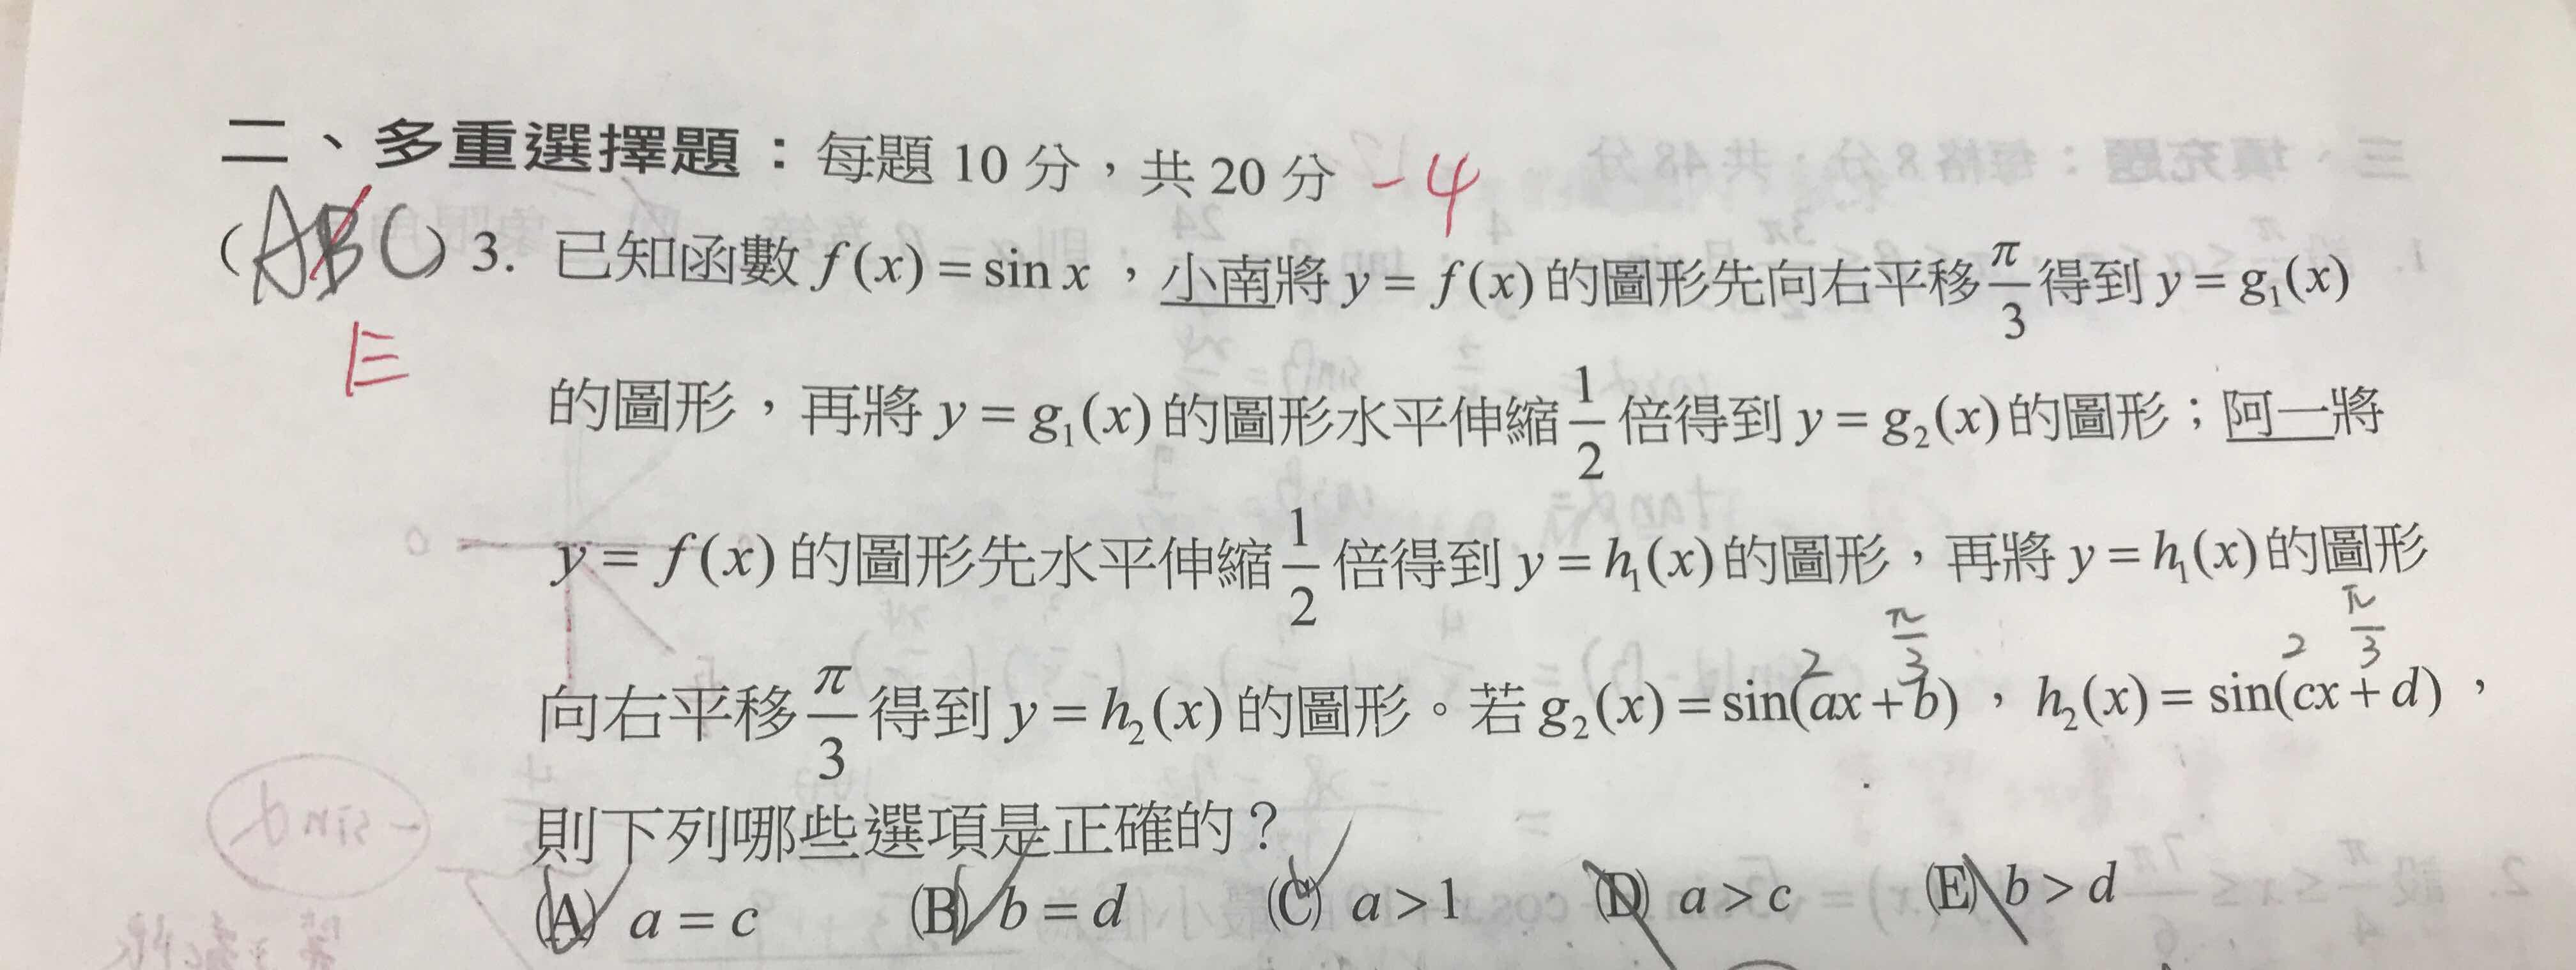 二、多重選擇題：每題 10 分，共 20 分 -4
(ABC) 3. 已知函數 f(x) = sin x，小南將 y = f(x) 的圖形先向右平移 π/3 得到 y = g₁(x)
E
的圖形，再將 y = g₁(x) 的圖形水平伸縮 1/2 倍得到 y = g₂(x) 的圖形；阿一將
y = f(x) 的圖形先水平伸縮 1/2 倍得到 y = h₁(x) 的圖形，再將 y = h₁(x) 的圖形
2 π/3 2 π/3
向右平移 π/3 得到 y = h₂(x) 的圖形。若 g₂(x) = sin(ax + b)，h₂(x) = sin(cx + d)，
則下列哪些選項是正確的？
(A) a = c (B) b = d (C) a > 1 (D) a > c (E) b > d